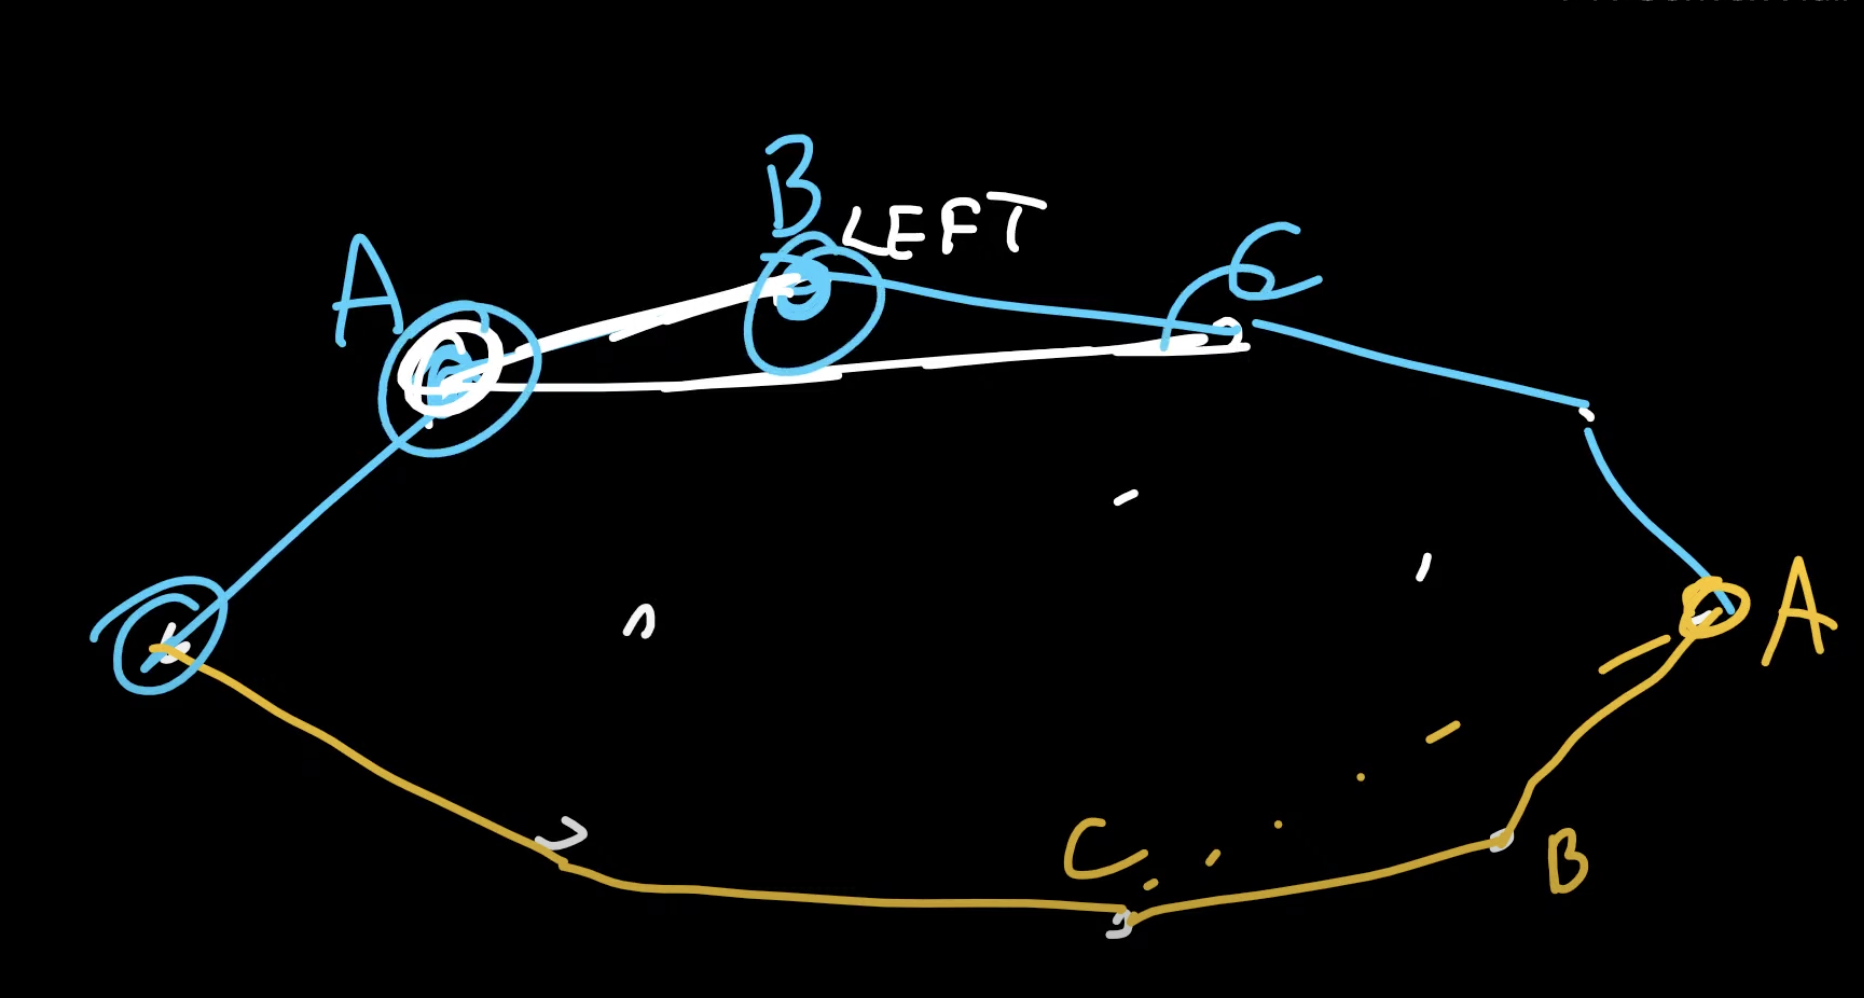 B
LEFT
A
C
A
C
B